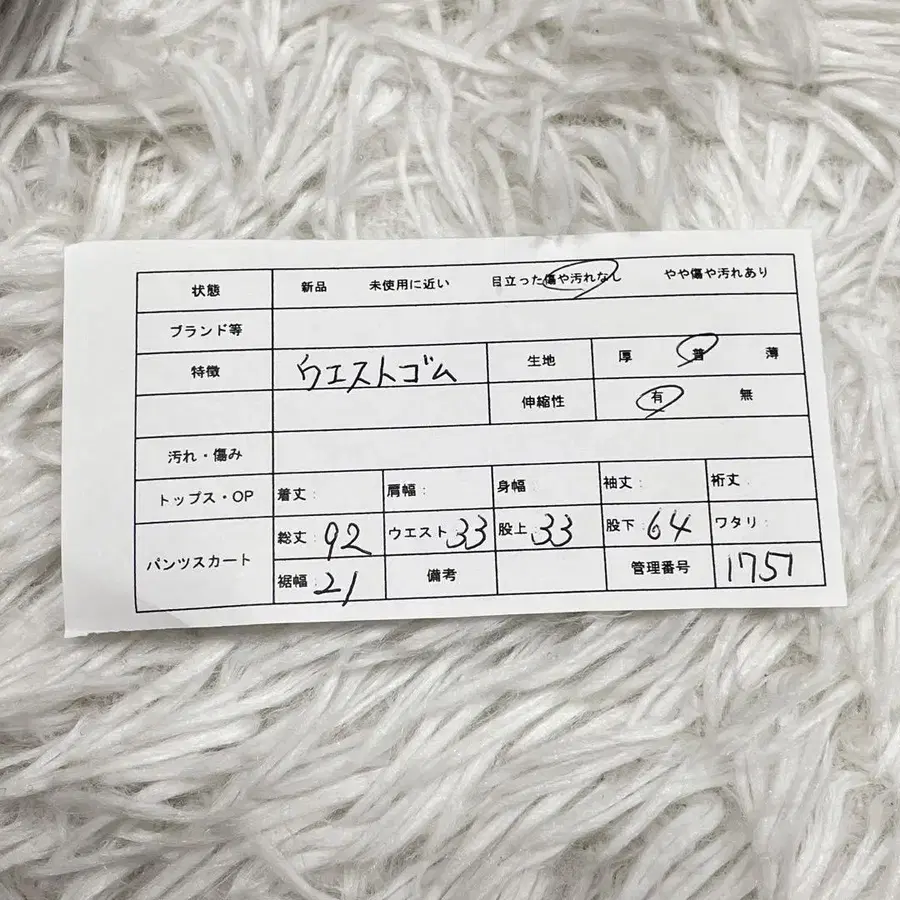 状態 新品 未使用に近い 目立った傷や汚れなし やや傷や汚れあり
ブランド等
特徴 ウエストゴム 生地 厚 普 薄
伸縮性 有 無
汚れ・傷み
トップス・OP 着丈: 肩幅: 身幅: 袖丈: 裄丈:
パンツスカート 総丈: 92 ウエスト: 33 股上: 33 股下: 64 ワタリ:
裾幅: 21 備考 管理番号 1757